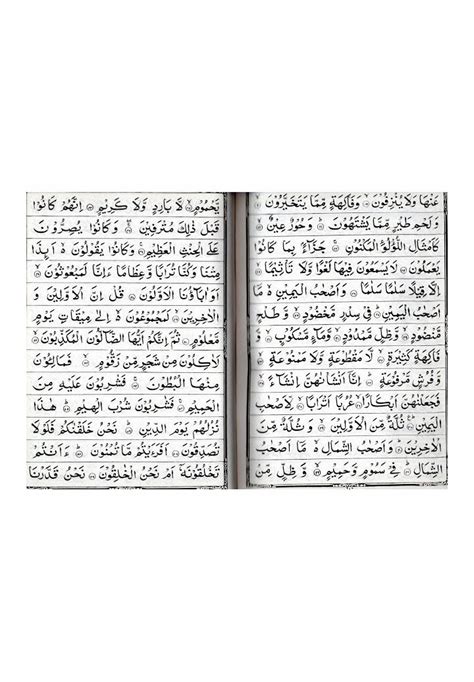 عَنْهَا وَلَا يُنْزِفُوْنَ ۝ وَفَاكِهَةٍ مِّمَّا يَتَخَيَّرُوْنَ ۝
وَلَحْمِ طَيْرٍ مِّمَّا يَشْتَهُوْنَ ۝ وَحُوْرٌ عِيْنٌ ۝
كَاَمْثَالِ اللُّؤْلُؤِ الْمَكْنُوْنِ ۝ جَزَآءًۢ بِمَا كَانُوْا
يَعْمَلُوْنَ ۝ لَا يَسْمَعُوْنَ فِيْهَا لَغْوًا وَّلَا تَاْثِيْمًا ۝
اِلَّا قِيْلًا سَلٰمًا سَلٰمًا ۝ وَاَصْحٰبُ الْيَمِيْنِ ە مَاۤ
اَصْحٰبُ الْيَمِيْنِ ۝ فِيْ سِدْرٍ مَّخْضُوْدٍ ۝ وَّطَلْحٍ
مَّنْضُوْدٍ ۝ وَّظِلٍّ مَّمْدُوْدٍ ۝ وَّمَآءٍ مَّسْكُوْبٍ ۝ وَّ
فَاكِهَةٍ كَثِيْرَةٍ ۝ لَّا مَقْطُوْعَةٍ وَّلَا مَمْنُوْعَةٍ ۝
وَّفُرُشٍ مَّرْفُوْعَةٍ ۝ اِنَّاۤ اَنْشَاْنٰهُنَّ اِنْشَآءً ۝
فَجَعَلْنٰهُنَّ اَبْكَارًا ۝ عُرُبًا اَتْرَابًا ۝ لِّاَصْحٰبِ
الْيَمِيْنِ ۝ ثُلَّةٌ مِّنَ الْاَوَّلِيْنَ ۝ وَثُلَّةٌ مِّنَ
الْاٰخِرِيْنَ ۝ وَاَصْحٰبُ الشِّمَالِ ە مَاۤ اَصْحٰبُ
الشِّمَالِ ۝ فِيْ سَمُوْمٍ وَّحَمِيْمٍ ۝ وَّظِلٍّ مِّنْ
يَّحْمُوْمٍ ۝ لَّا بَارِدٍ وَّلَا كَرِيْمٍ ۝ اِنَّهُمْ كَانُوْا
قَبْلَ ذٰلِكَ مُتْرَفِيْنَ ۝ وَكَانُوْا يُصِرُّوْنَ
عَلَى الْحِنْثِ الْعَظِيْمِ ۝ وَكَانُوْا يَقُوْلُوْنَ ە اَىِٕذَا
مِتْنَا وَكُنَّا تُرَابًا وَّعِظَامًا ءَاِنَّا لَمَبْعُوْثُوْنَ ۝
اَوَاٰبَآؤُنَا الْاَوَّلُوْنَ ۝ قُلْ اِنَّ الْاَوَّلِيْنَ وَ
الْاٰخِرِيْنَ ۝ لَمَجْمُوْعُوْنَ ە اِلٰى مِيْقَاتِ يَوْمٍ
مَّعْلُوْمٍ ۝ ثُمَّ اِنَّكُمْ اَيُّهَا الضَّآلُّوْنَ الْمُكَذِّبُوْنَ ۝
لَاٰكِلُوْنَ مِنْ شَجَرٍ مِّنْ زَقُّوْمٍ ۝ فَمَالِـُٔوْنَ
مِنْهَا الْبُطُوْنَ ۝ فَشٰرِبُوْنَ عَلَيْهِ مِنَ
الْحَمِيْمِ ۝ فَشٰرِبُوْنَ شُرْبَ الْهِيْمِ ۝ هٰذَا
نُزُلُهُمْ يَوْمَ الدِّيْنِ ۝ نَحْنُ خَلَقْنٰكُمْ فَلَوْلَا
تُصَدِّقُوْنَ ۝ اَفَرَءَيْتُمْ مَّا تُمْنُوْنَ ۝ ءَاَنْتُمْ
تَخْلُقُوْنَهٗۤ اَمْ نَحْنُ الْخٰلِقُوْنَ ۝ نَحْنُ قَدَّرْنَا